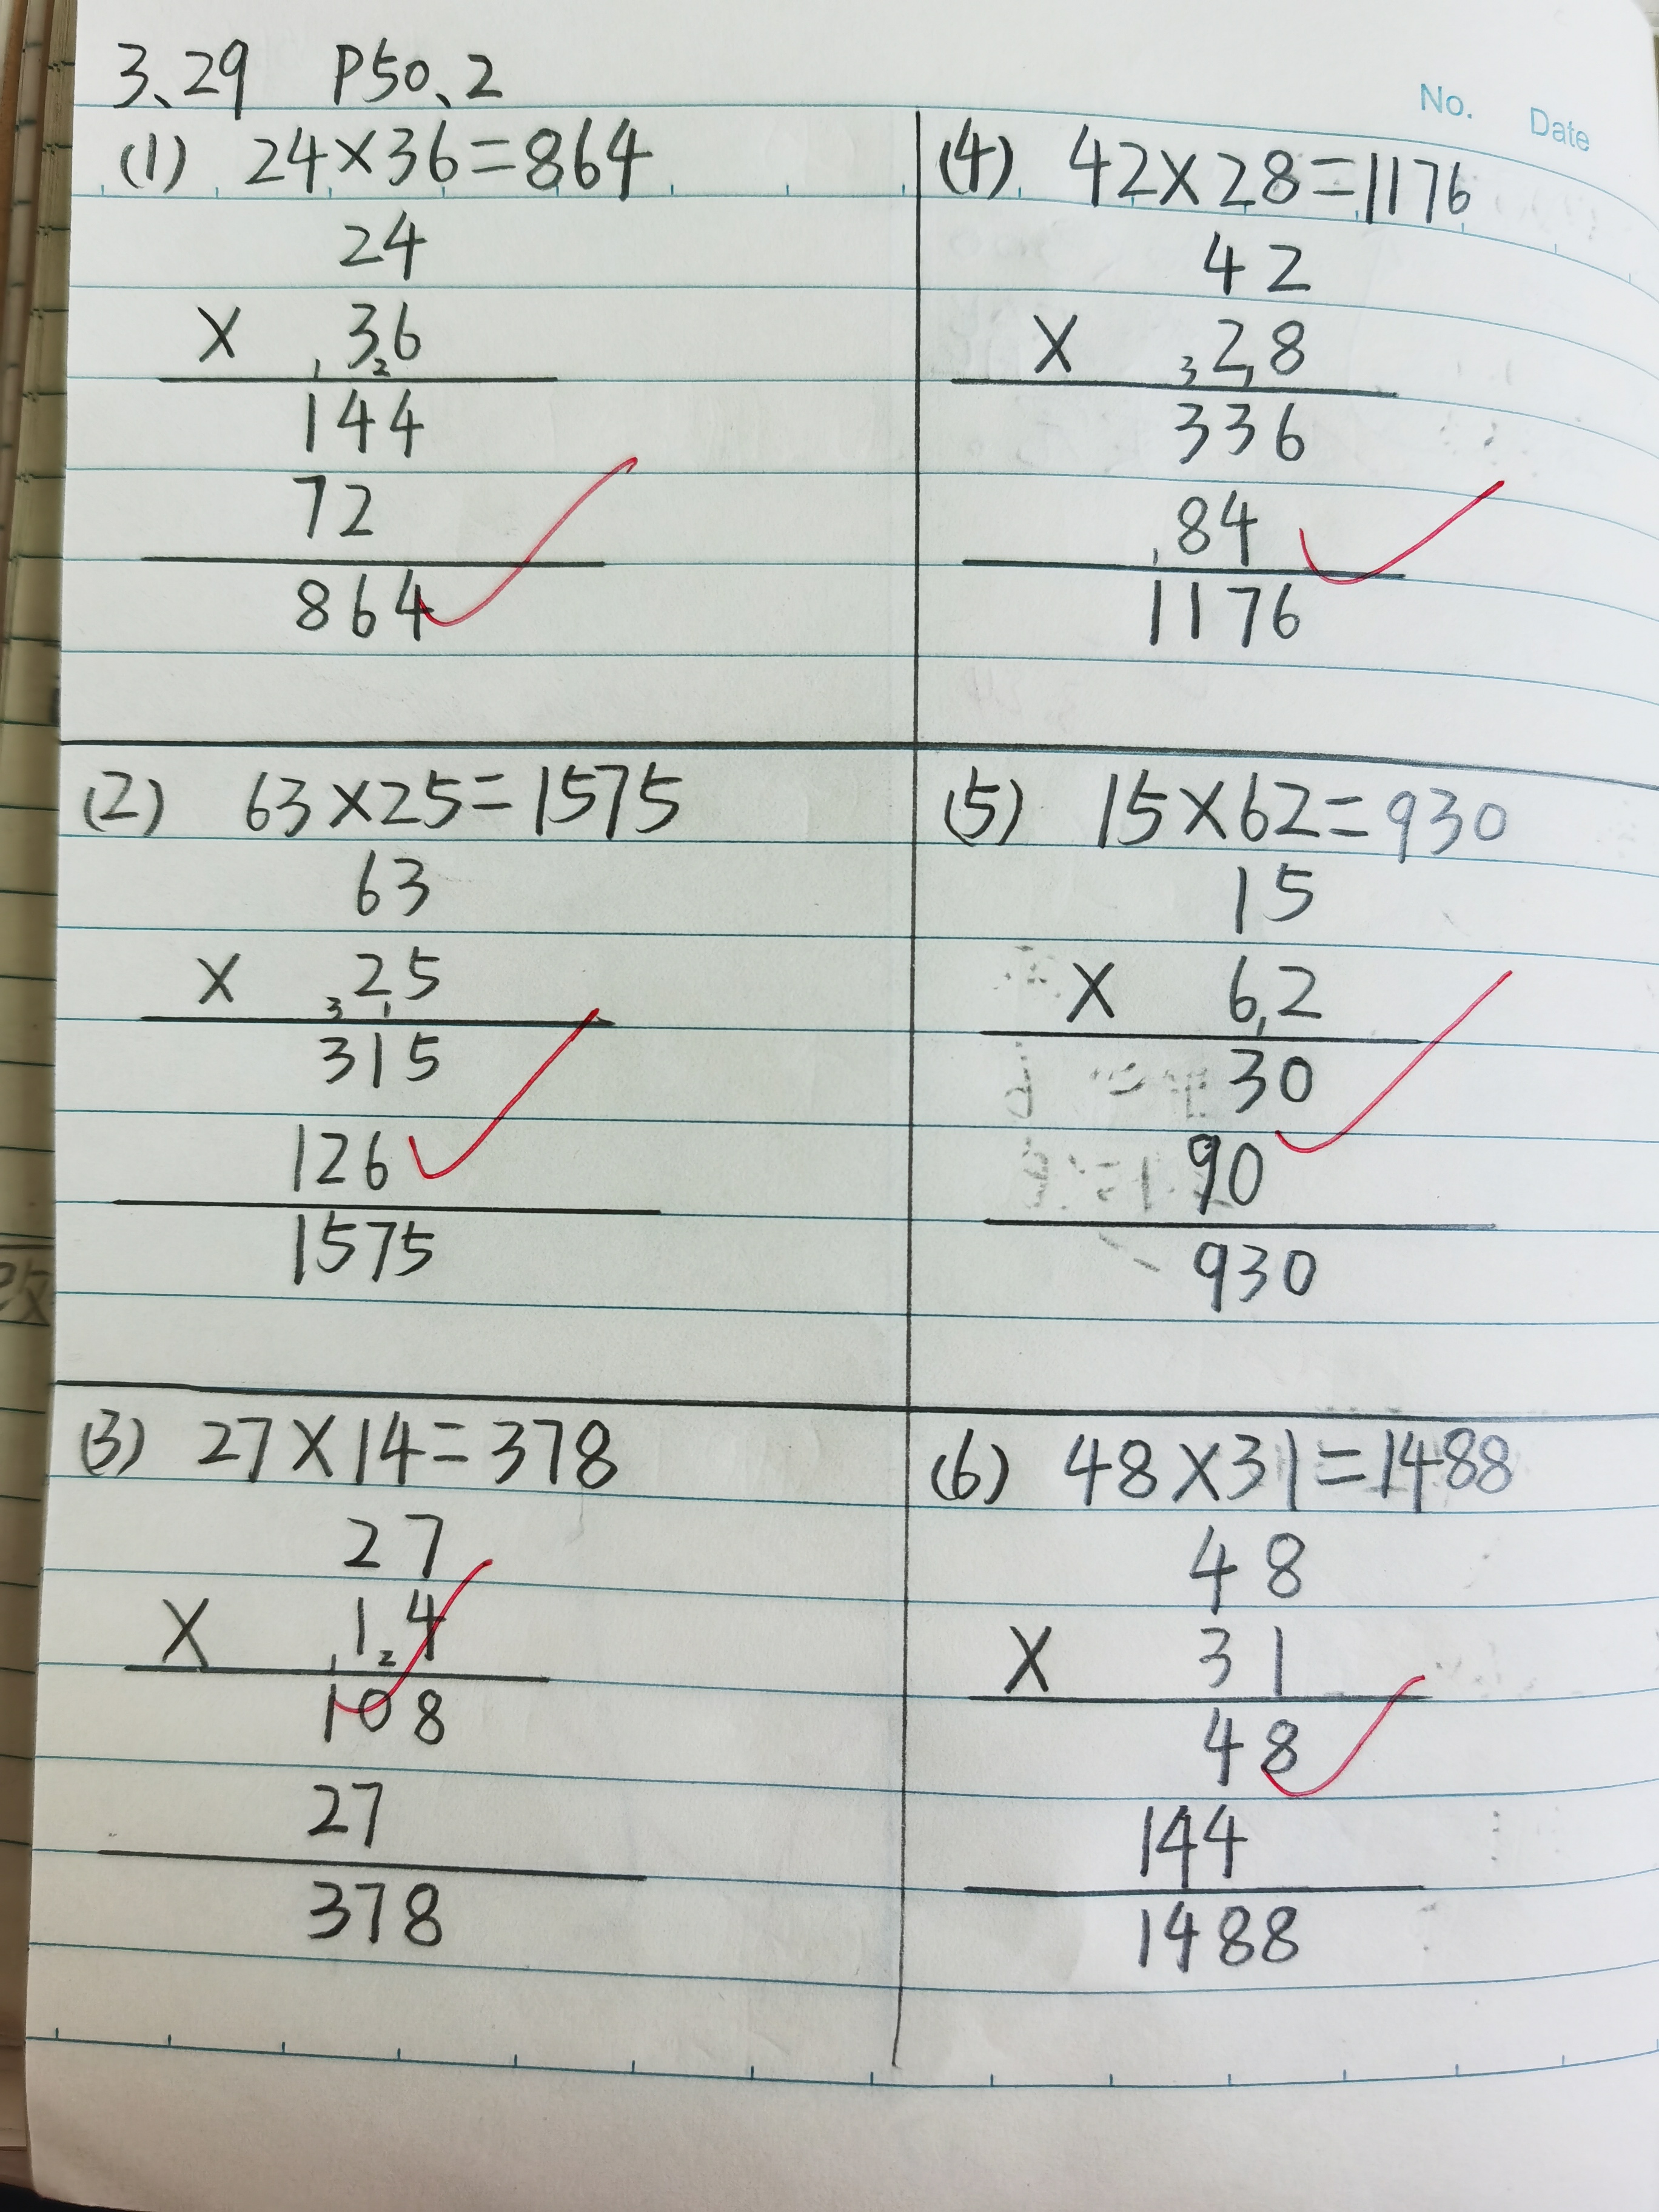 3、29 P50、2
No. Date
(1) 24×36=864
24
× 36
1 2
144
72
864
(2) 63×25=1575
63
× 25
3 1
315
126
1575
(3) 27×14=378
27
× 14
1 2
108
27
378
(4) 42×28=1176
42
× 28
3 1
336
84
1
1176
(5) 15×62=930
15
× 62
1
30
90
930
(6) 48×31=1488
48
× 31
48
144
1488
改